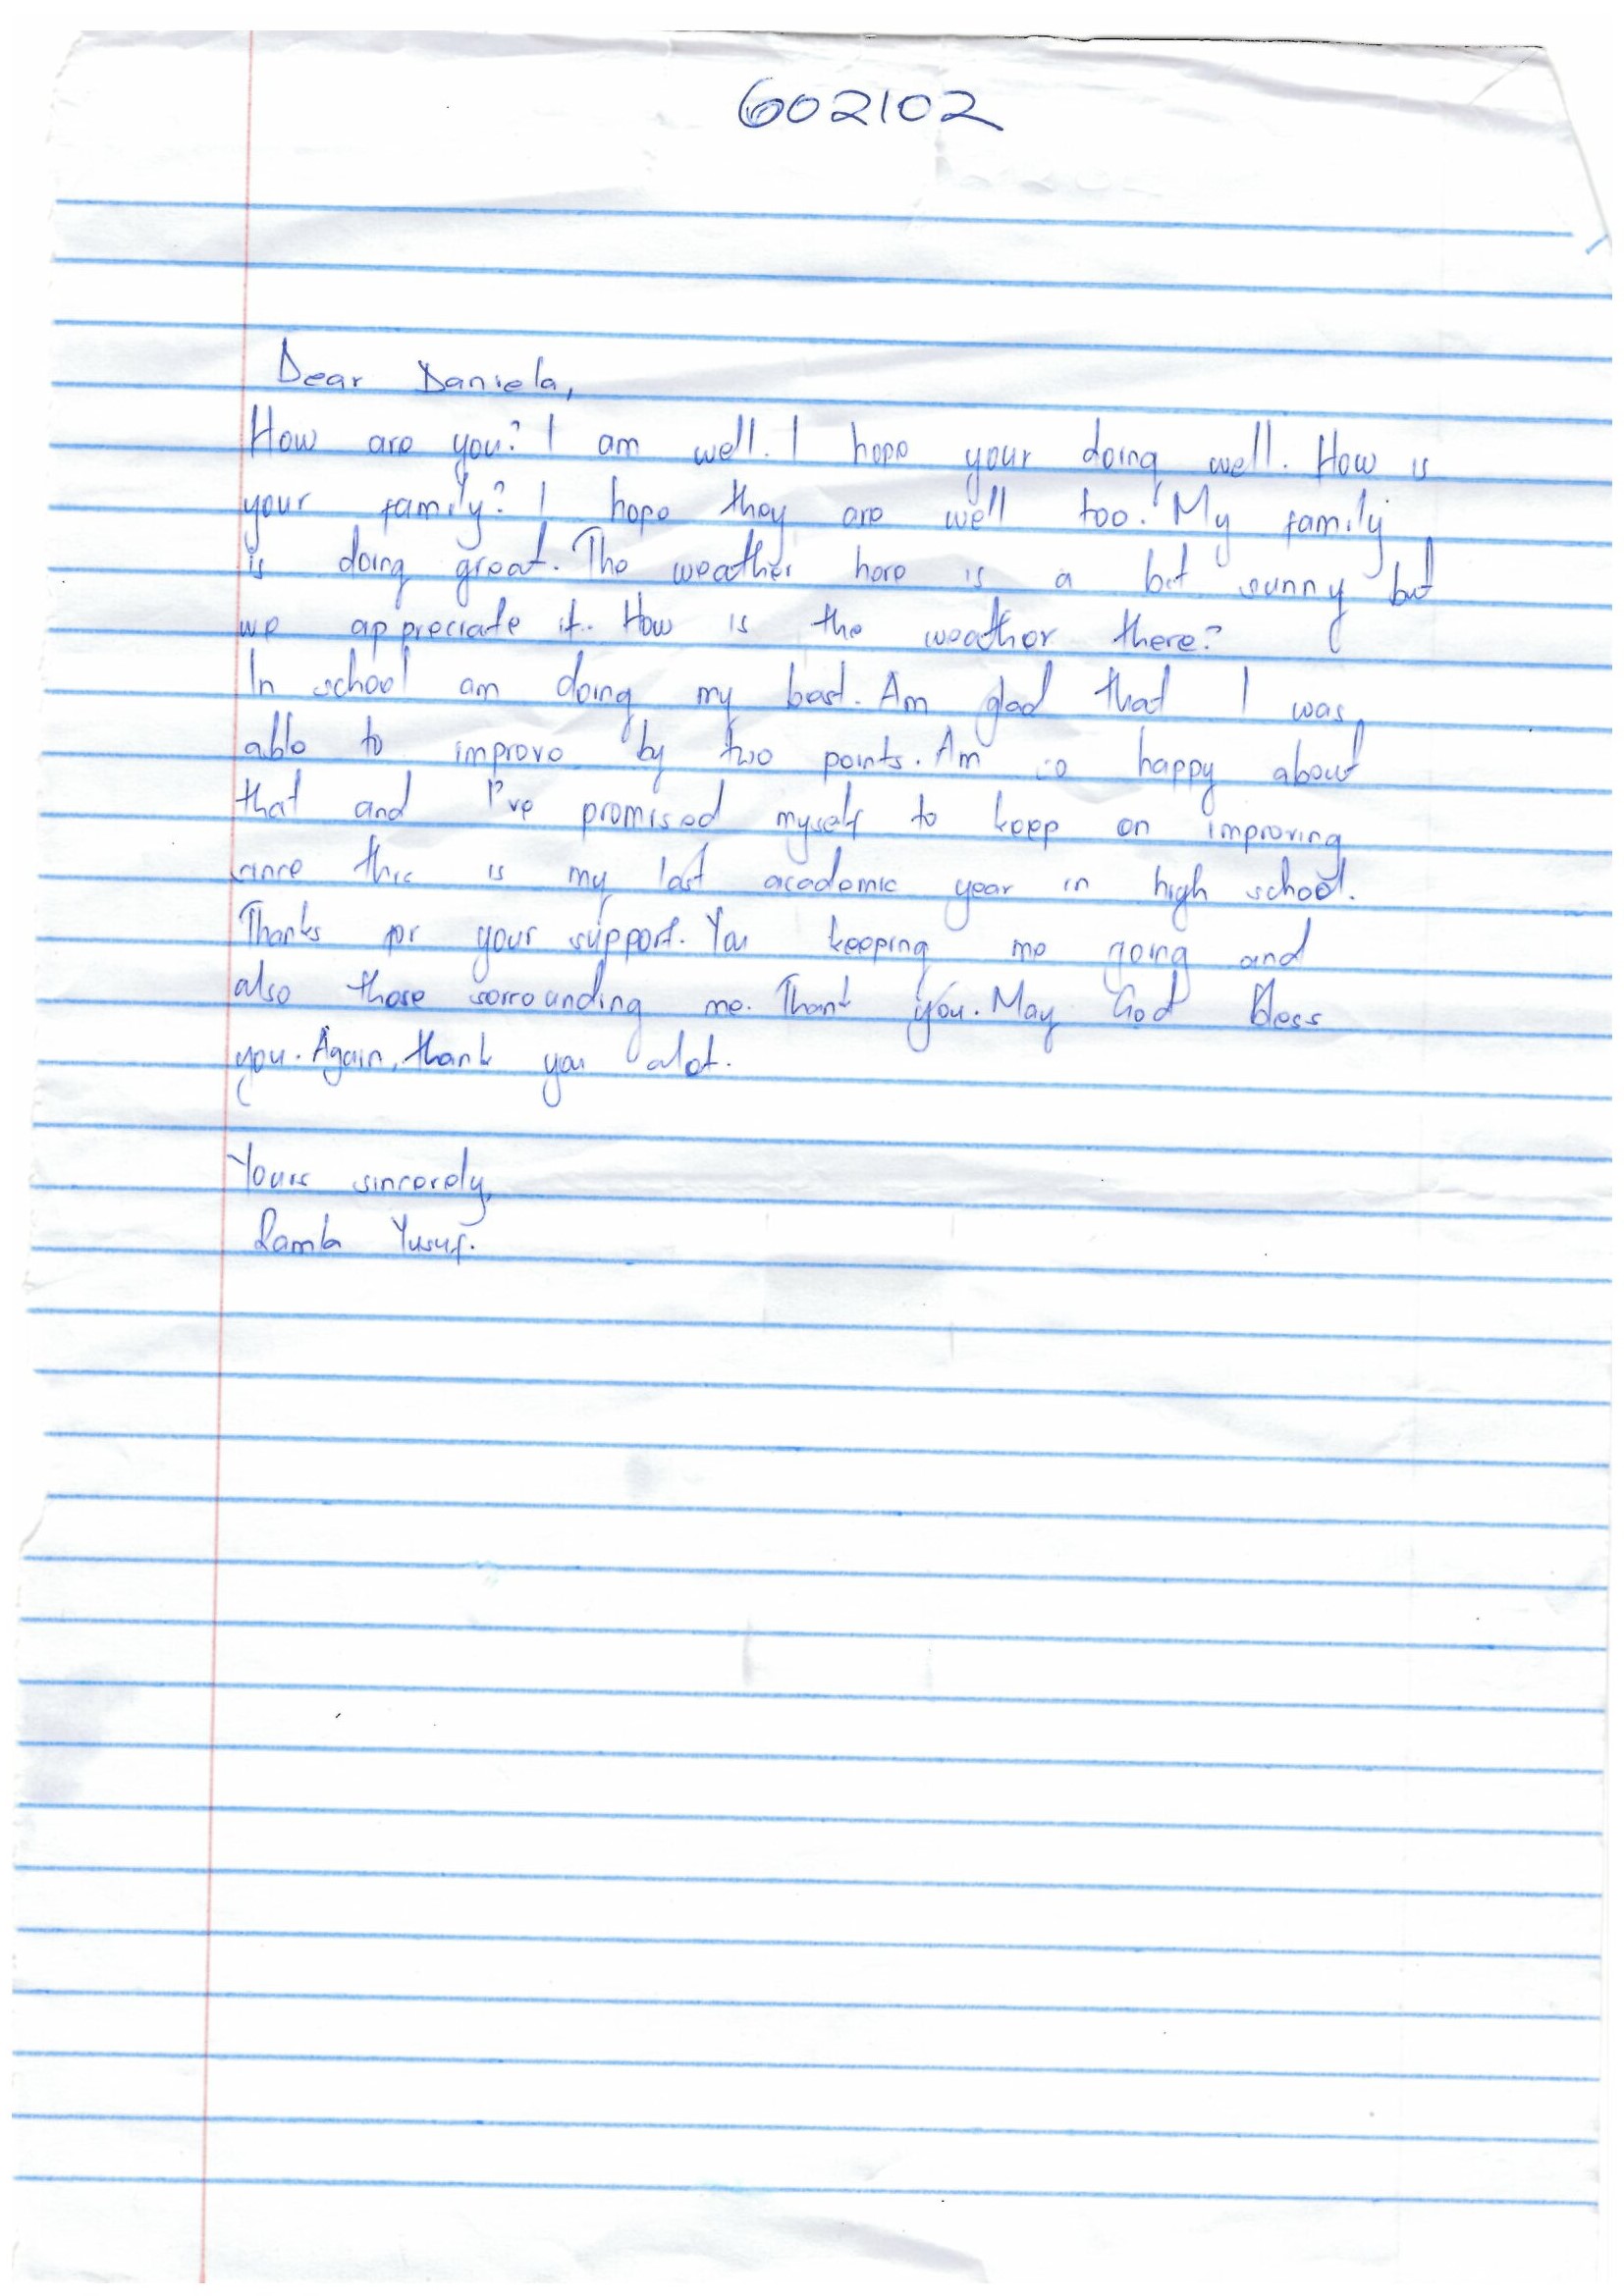 602102
Dear Daniela,
How are you? I am well. I hope your doing well. How is
your family? I hope they are well too. My family
is doing great. The weather here is a bit sunny but
we appreciate it. How is the weather there?
In school am doing my best. Am glad that I was
able to improve by two points. Am so happy about
that and I've promised myself to keep on improving
since this is my last academic year in high school.
Thanks for your support. You keeping me going and
also those sorrounding me. Thank you. May God bless
you. Again, thank you alot.
Yours sincerely,
Yusuf.